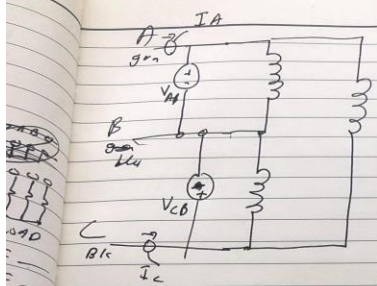 IA
A
grn
VAB
B
blu
VCB
C
Blk
Ic
OAD